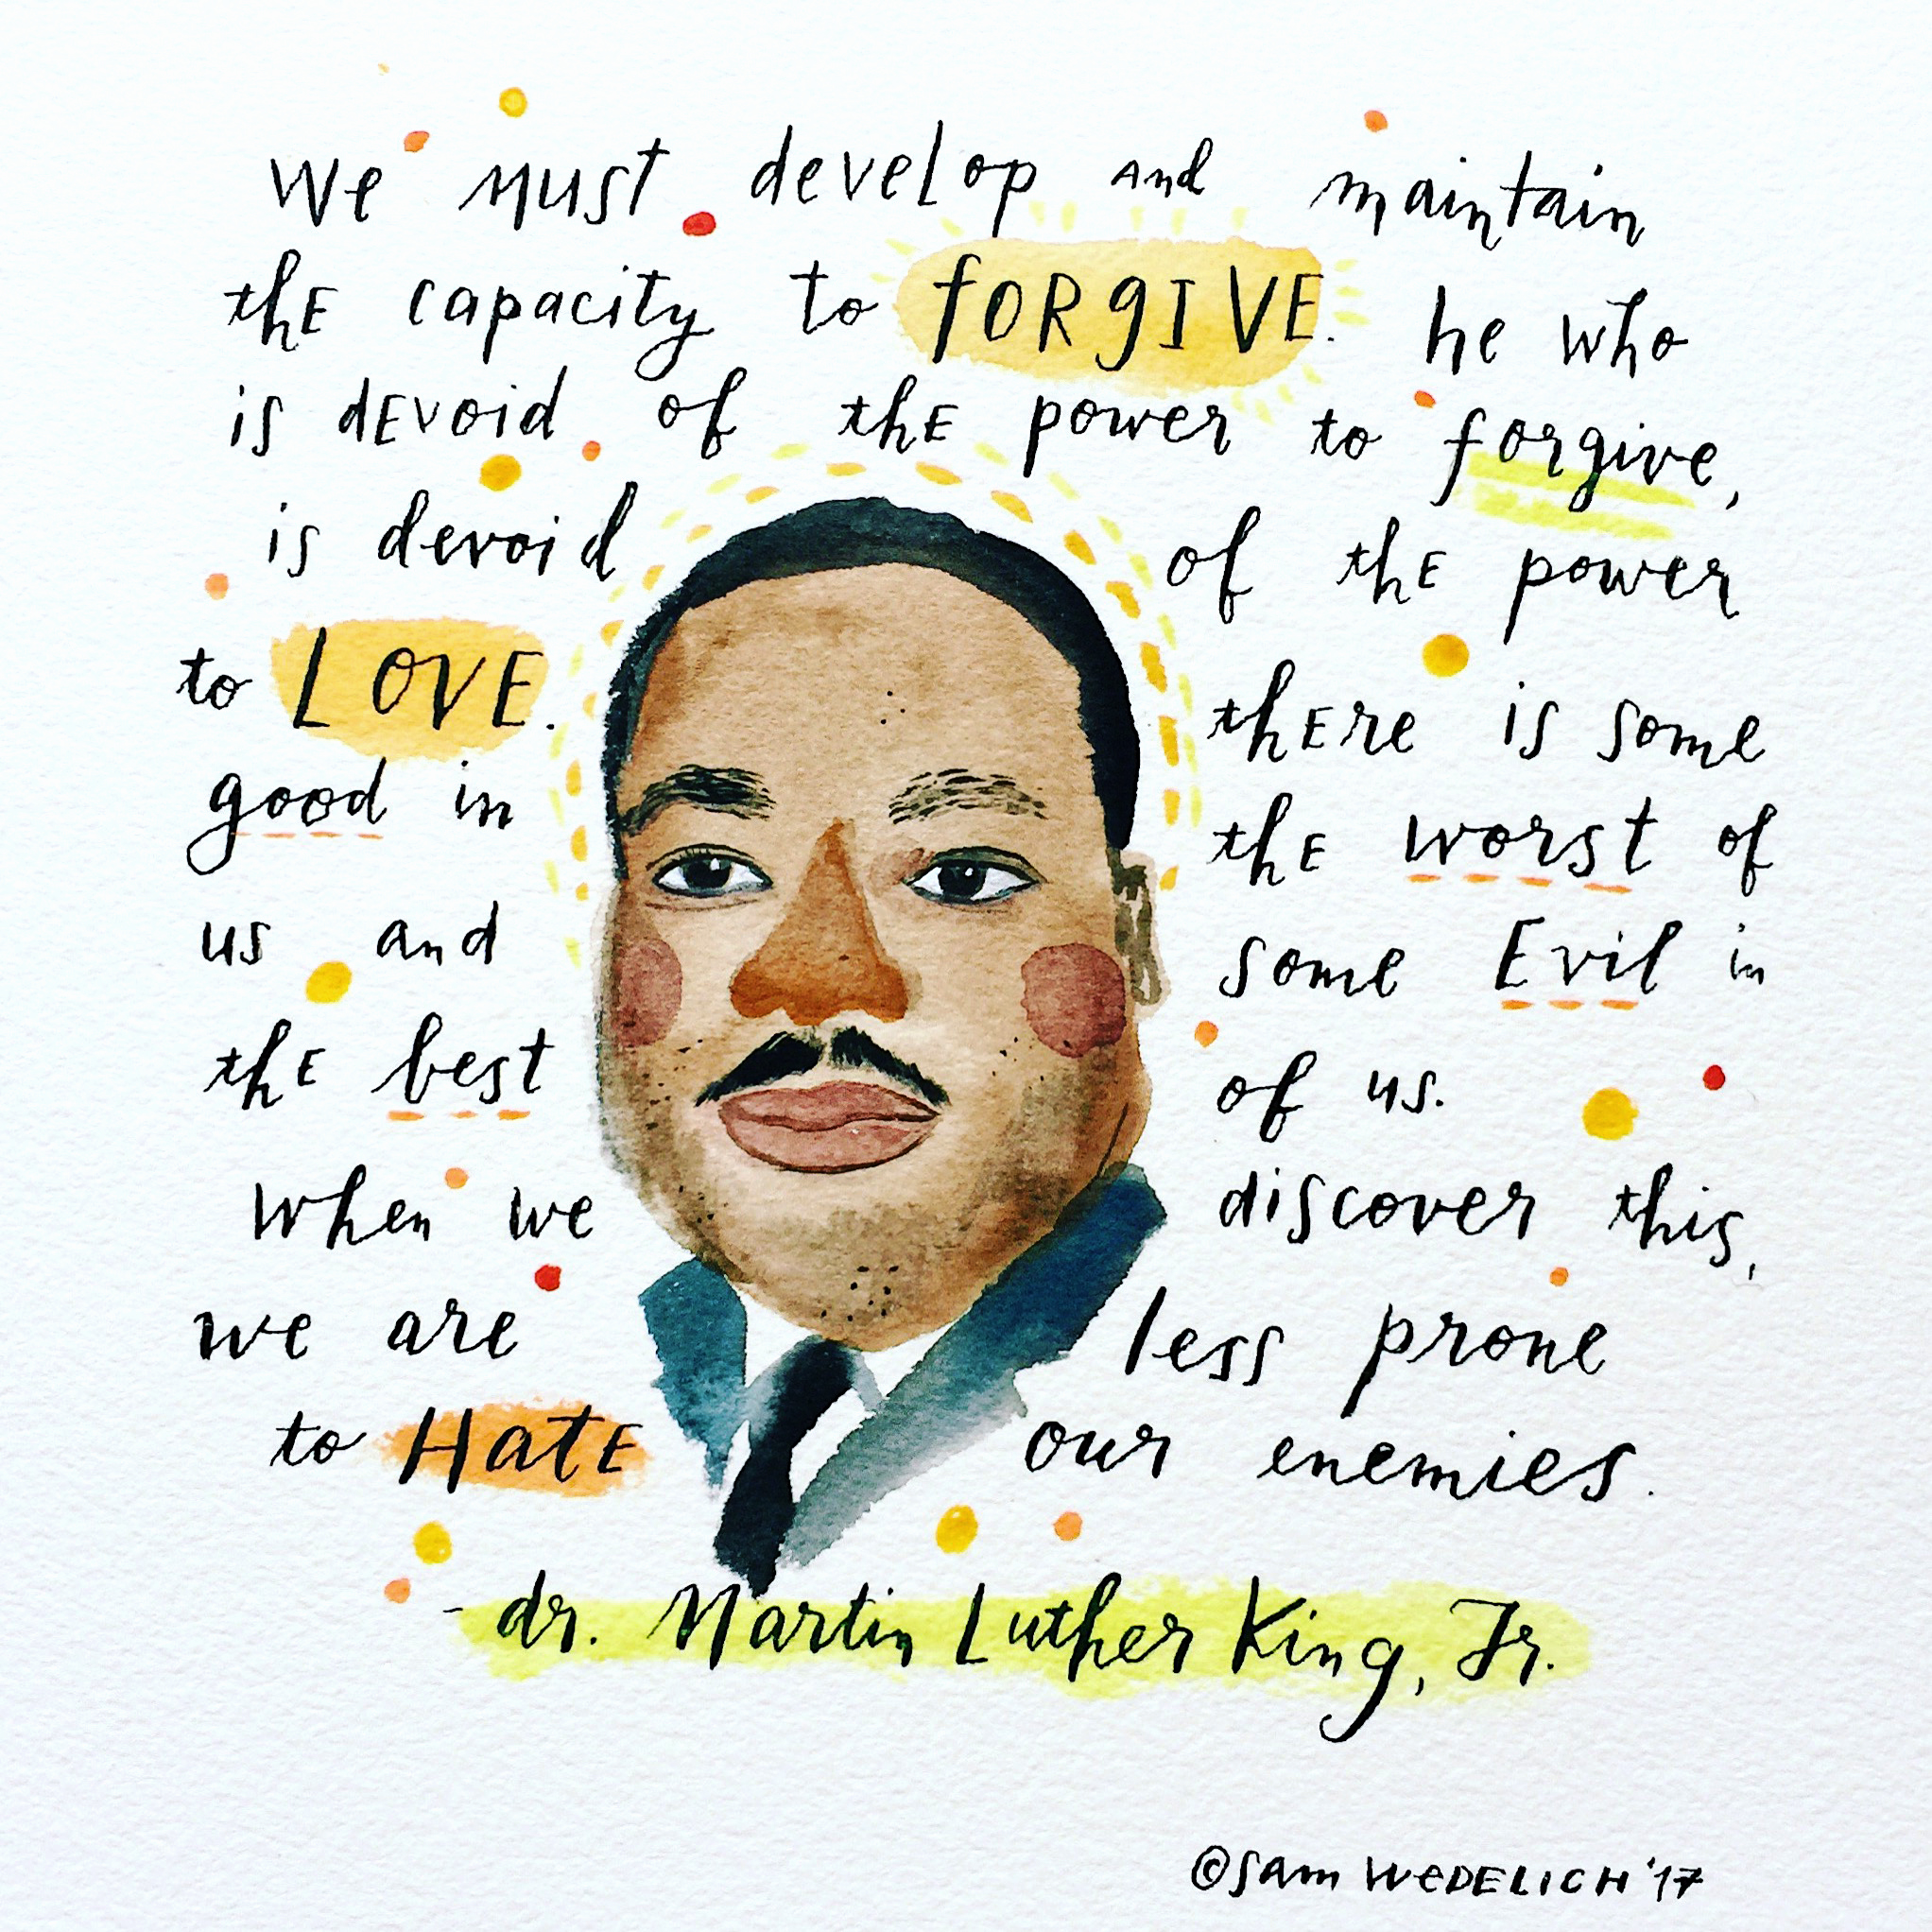 We must develop and maintain
the capacity to forgIVE. he who
is dEvoid of the power to forgive,
is devoid of the power
to LOVE. there is some
good in the worst of
us and some Evil in
the best of us.
When we discover this,
we are less prone
to HatE our enemies.
- dr. Martin Luther King, Jr.
©Sam WeDELICH '17